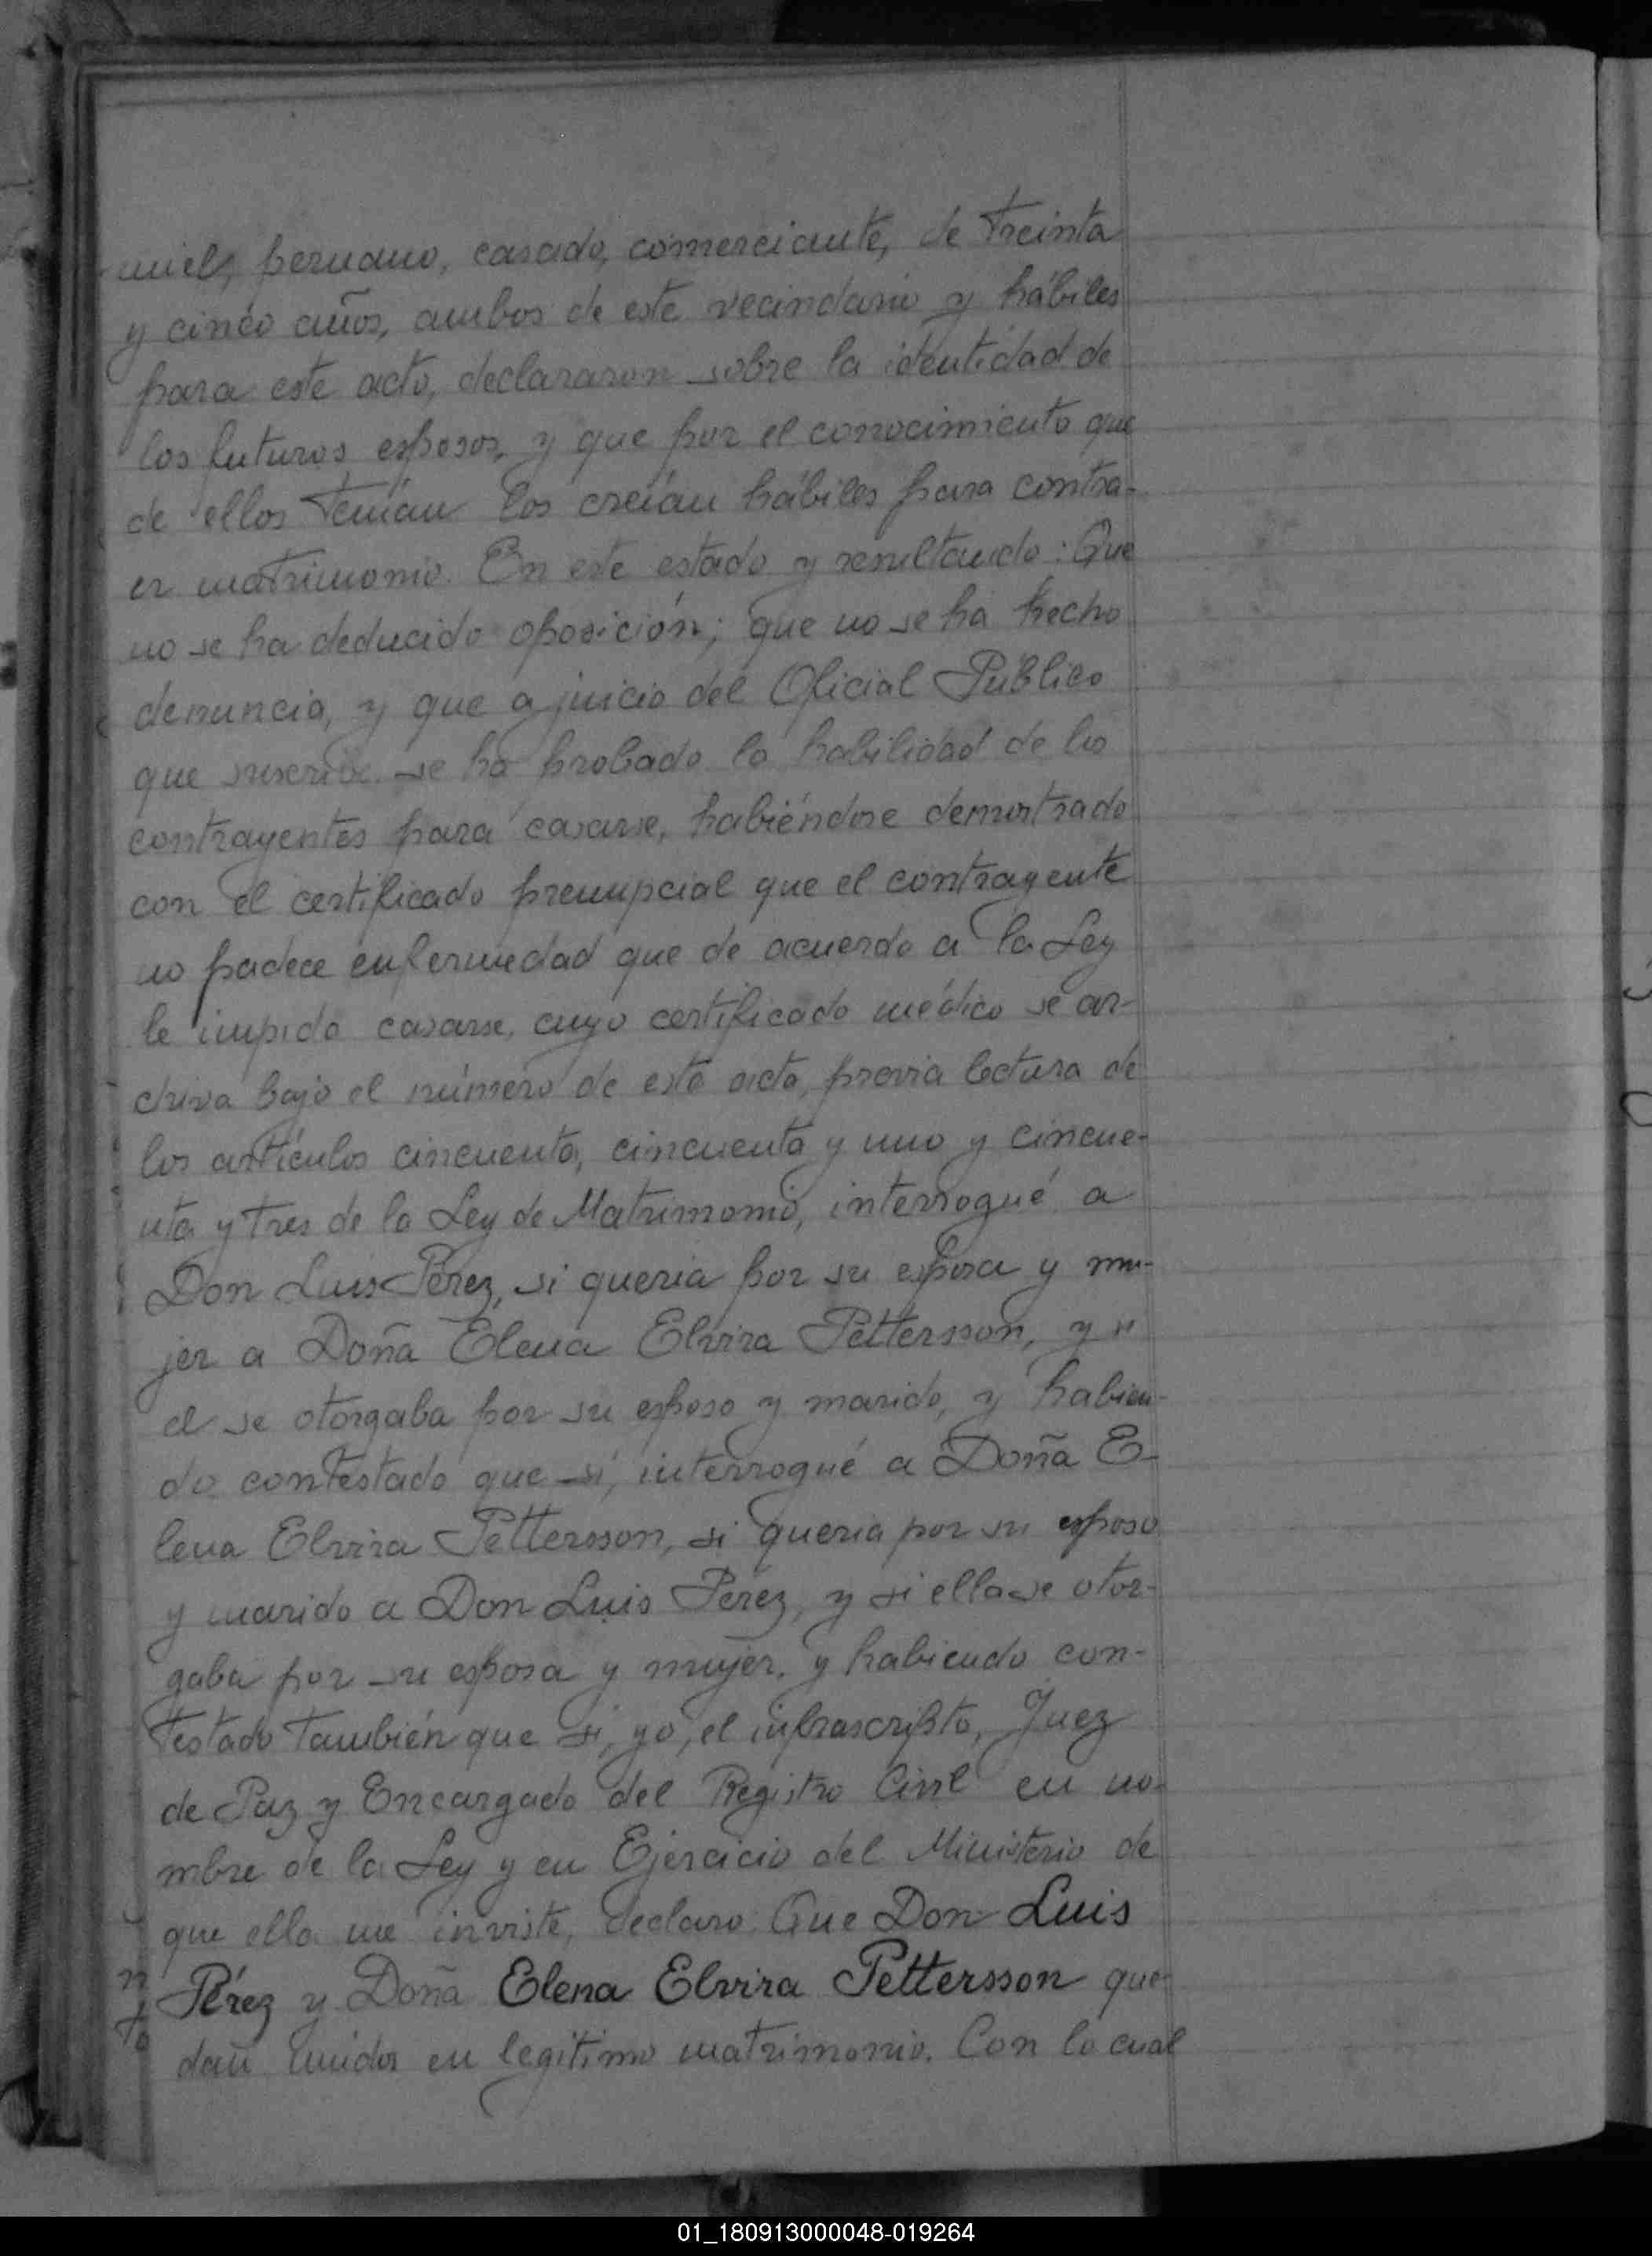 miel, peruano, casado, comerciante, de treinta
y cinco años, ambos de este vecindario y hábiles
para este acto, declararon sobre la identidad de
los futuros esposos, y que por el conocimiento que
de ellos tenían los creían hábiles para contra-
er matrimonio. En este estado y resultando: Que
no se ha deducido oposición; que no se ha hecho
denuncia, y que a juicio del Oficial Público
que suscribe se ha probado la habilidad de los
contrayentes para casarse, habiéndose demostrado
con el certificado prenupcial que el contrayente
no padece enfermedad que de acuerdo a la Ley
le impida casarse, cuyo certificado médico se ar-
chiva bajo el número de esta acta, previa lectura de
los artículos cincuenta, cincuenta y uno y cincue-
nta y tres de la Ley de Matrimonio, interrogué a
Don Luis Pérez, si queria por su esposa y mu-
jer a Doña Elena Elvira Pettersson, y si
el se otorgaba por su esposo y marido, y habien-
do contestado que si, interrogué a Doña E-
lena Elvira Pettersson, si queria por su esposo
y marido a Don Luis Pérez, y si ella se otor-
gaba por su esposa y mujer, y habiendo con-
testado también que si, yo, el infrascripto, Juez
de Paz y Encargado del Registro Civil en no-
mbre de la Ley y en Ejercicio del Ministerio de
que ella me inviste, declaro: Que Don Luis
Pérez y Doña Elena Elvira Pettersson que-
dan unidos en legítimo matrimonio. Con lo cual
01_180913000048-019264